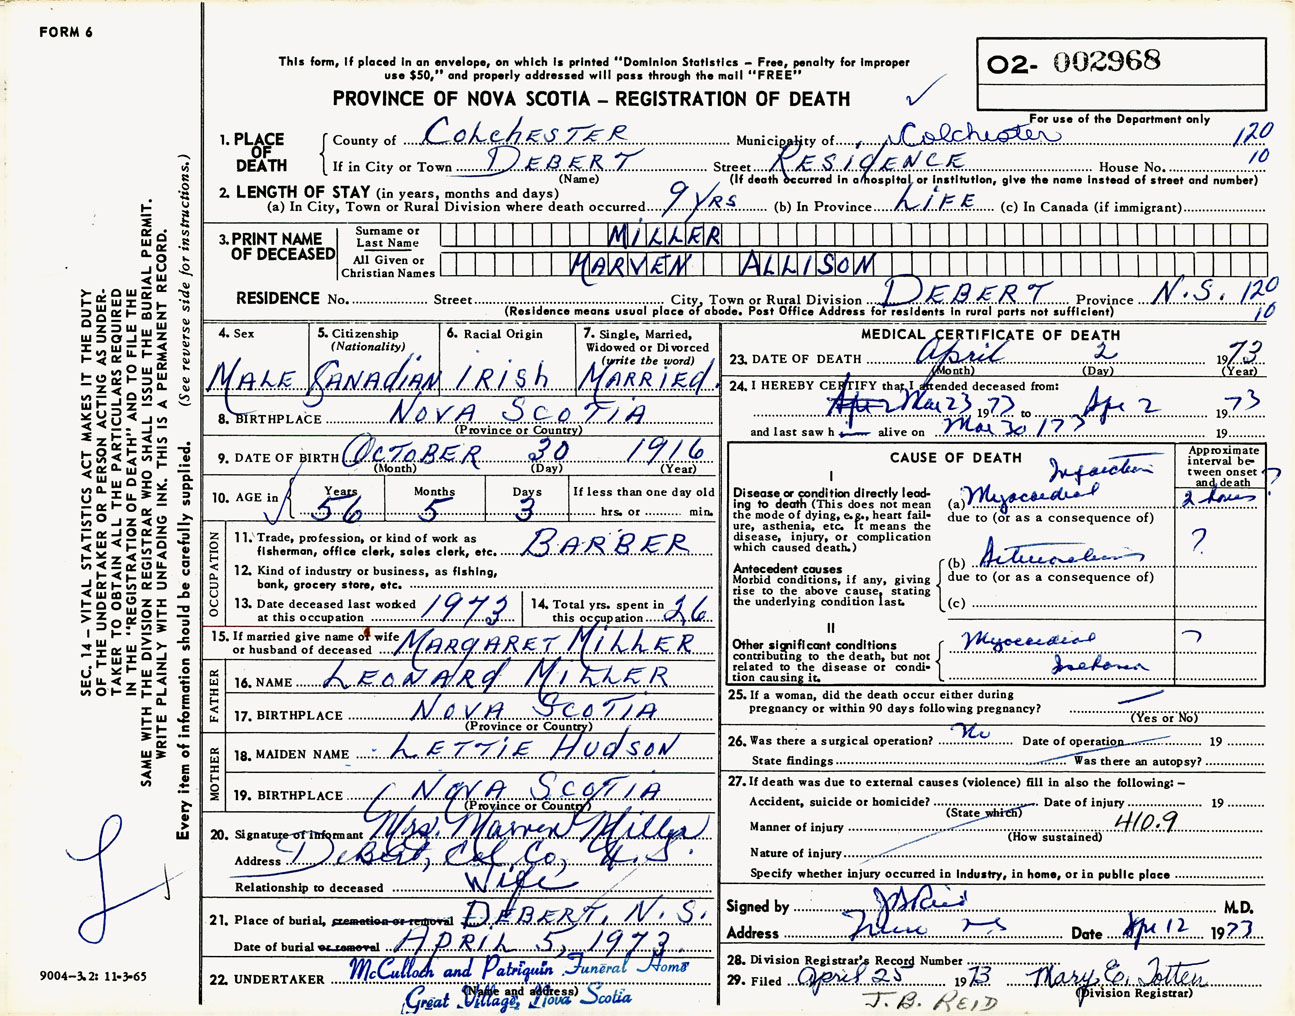 FORM 6
This form, if placed in an envelope, on which is printed "Dominion Statistics – Free, penalty for improper
use $50," and properly addressed will pass through the mail "FREE"
PROVINCE OF NOVA SCOTIA – REGISTRATION OF DEATH
02- 002968
For use of the Department only
1. PLACE OF DEATH
County of COLCHESTER Municipality of Colchester 120
If in City or Town DEBERT Street RESIDENCE House No. 10
(Name) (If death occurred in a hospital or institution, give the name instead of street and number)
2. LENGTH OF STAY (in years, months and days)
(a) In City, Town or Rural Division where death occurred 9 YRS (b) In Province LIFE (c) In Canada (if immigrant)
3. PRINT NAME OF DECEASED
Surname or Last Name MILLER
All Given or Christian Names MARVEN ALLISON
RESIDENCE No. Street City, Town or Rural Division DEBERT Province N.S. 120
(Residence means usual place of abode. Post Office Address for residents in rural parts not sufficient) 10
4. Sex MALE
5. Citizenship (Nationality) CANADIAN
6. Racial Origin IRISH
7. Single, Married, Widowed or Divorced (write the word) MARRIED.
8. BIRTHPLACE NOVA SCOTIA
(Province or Country)
9. DATE OF BIRTH OCTOBER 30 1916
(Month) (Day) (Year)
10. AGE in Years 56 Months 5 Days 3 If less than one day old hrs. or min.
OCCUPATION
11. Trade, profession, or kind of work as
fisherman, office clerk, sales clerk, etc. BARBER
12. Kind of industry or business, as fishing,
bank, grocery store, etc.
13. Date deceased last worked at this occupation 1973
14. Total yrs. spent in this occupation 26
15. If married give name of wife
or husband of deceased MARGARET MILLER
FATHER
16. NAME LEONARD MILLER
17. BIRTHPLACE NOVA SCOTIA
(Province or Country)
MOTHER
18. MAIDEN NAME LETTIE HUDSON
19. BIRTHPLACE NOVA SCOTIA
(Province or Country)
20. Signature of informant Mrs. Marven Miller
Address Debert, Col. Co, N.S.
Relationship to deceased Wife
21. Place of burial, cremation or removal DEBERT, N.S.
Date of burial or removal APRIL 5, 1973.
22. UNDERTAKER McCulloch and Patriquin Funeral Home
(Name and address)
Great Village, Nova Scotia
MEDICAL CERTIFICATE OF DEATH
23. DATE OF DEATH April 2 1973
(Month) (Day) (Year)
24. I HEREBY CERTIFY that I attended deceased from:
Mar 23 1973 to Apr 2 1973
and last saw h alive on Mar 30 / 73 19
CAUSE OF DEATH
Approximate interval between onset and death
I
Disease or condition directly leading to death (This does not mean the mode of dying, e.g., heart failure, asthenia, etc. It means the disease, injury, or complication which caused death.)
(a) Myocardial Infarction 2 hours ?
due to (or as a consequence of)
Antecedent causes
Morbid conditions, if any, giving rise to the above cause, stating the underlying condition last.
(b) ?
due to (or as a consequence of)
(c)
II
Other significant conditions contributing to the death, but not related to the disease or condition causing it.
Myocardial Ischemia ?
25. If a woman, did the death occur either during
pregnancy or within 90 days following pregnancy?
(Yes or No)
26. Was there a surgical operation? No Date of operation 19
State findings Was there an autopsy?
27. If death was due to external causes (violence) fill in also the following: –
Accident, suicide or homicide? Date of injury 19
(State which)
Manner of injury 410.9
(How sustained)
Nature of injury
Specify whether injury occurred in industry, in home, or in public place
Signed by J B Reid M.D.
Address Truro NS Date Apr 12 1973
28. Division Registrar's Record Number
29. Filed April 25 1973 Mary E. Totten
(Division Registrar)
J. B. REID
SEC. 14 – VITAL STATISTICS ACT MAKES IT THE DUTY
OF THE UNDERTAKER OR PERSON ACTING AS UNDER-
TAKER TO OBTAIN ALL THE PARTICULARS REQUIRED
IN THE "REGISTRATION OF DEATH" AND TO FILE THE
SAME WITH THE DIVISION REGISTRAR WHO SHALL ISSUE THE BURIAL PERMIT.
WRITE PLAINLY WITH UNFADING INK. THIS IS A PERMANENT RECORD.
Every item of information should be carefully supplied. (See reverse side for instructions.)
9004-3.2: 11-3-65